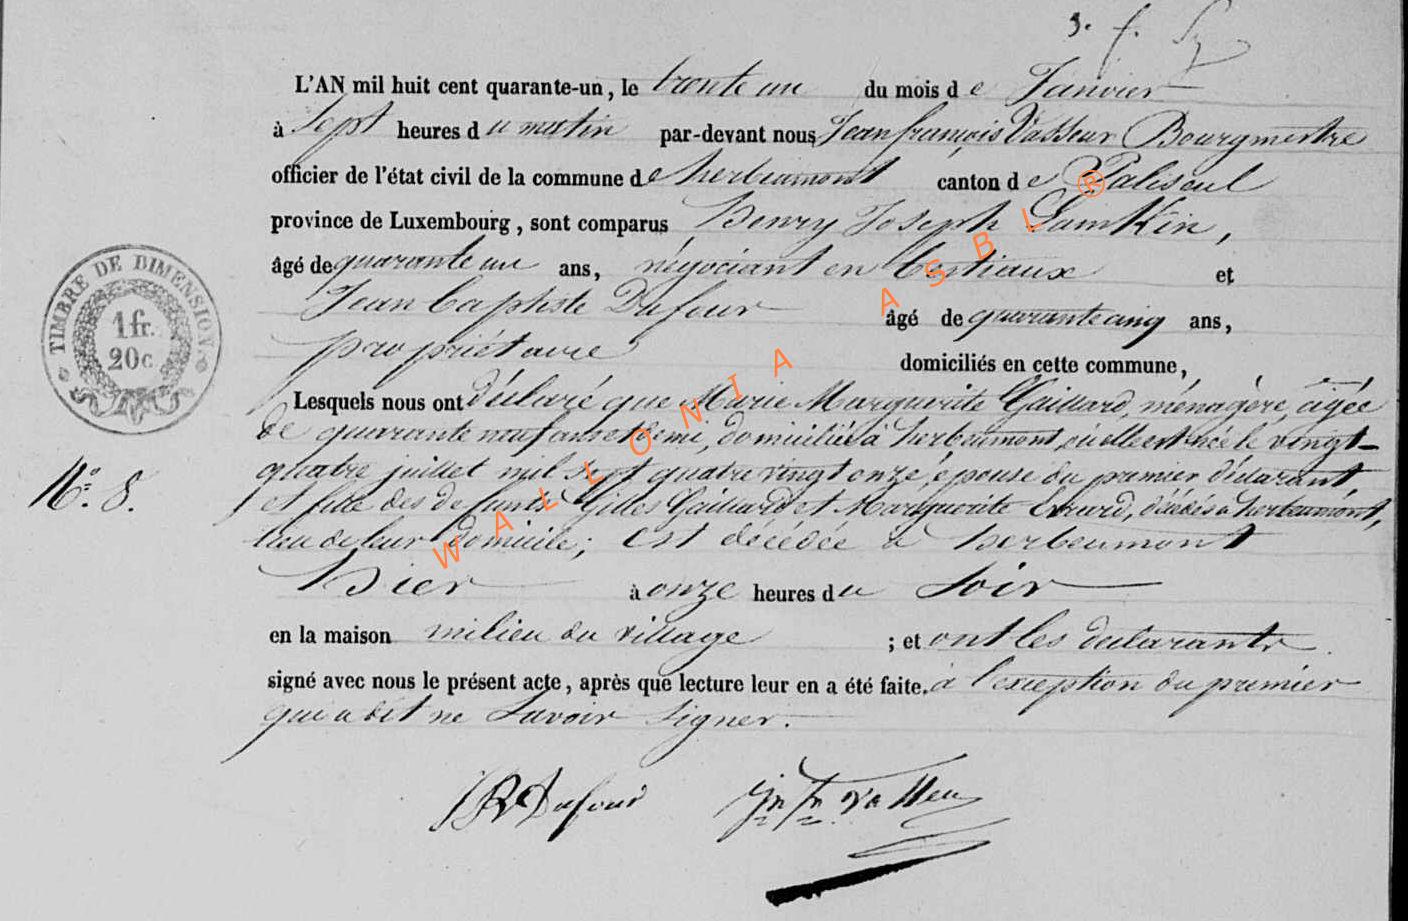 3. f.
L'AN mil huit cent quarante-un, le trente un du mois de Janvier
à Sept heures du matin par-devant nous Jean françois Vasseur Bourgmestre
officier de l'état civil de la commune de herbeumont canton de Paliseul
province de Luxembourg, sont comparus Henry Joseph Lambkin,
âgé de quarante un ans, négociant en bestiaux et
Jean Baptiste Dufour âgé de quarante cinq ans,
propriétaire domiciliés en cette commune,
Lesquels nous ont déclaré que Marie Marguerite Gaillard, ménagère, agée
de quarante neuf ans et demi, domiciliée à herbeumont, où elle est née le vingt-
quatre juillet mil sept quatre vingt onze, épouse du premier déclarant
et fille des defunts Gilles Gaillard et Marguerite Evrard, décédés à herbeumont,
lieu de leur domicile; est décédée à herbeumont
Hier à onze heures du Soir
en la maison milieu du village ; et ont les déclarants
signé avec nous le présent acte, après que lecture leur en a été faite, à l'exception du premier
qui a dit ne Savoir Signer.
TIMBRE DE DIMENSION
1 fr.
20 c
N.° 8.
JB Dufour Jn fn Vasseur
WALLONIA ASBL ®